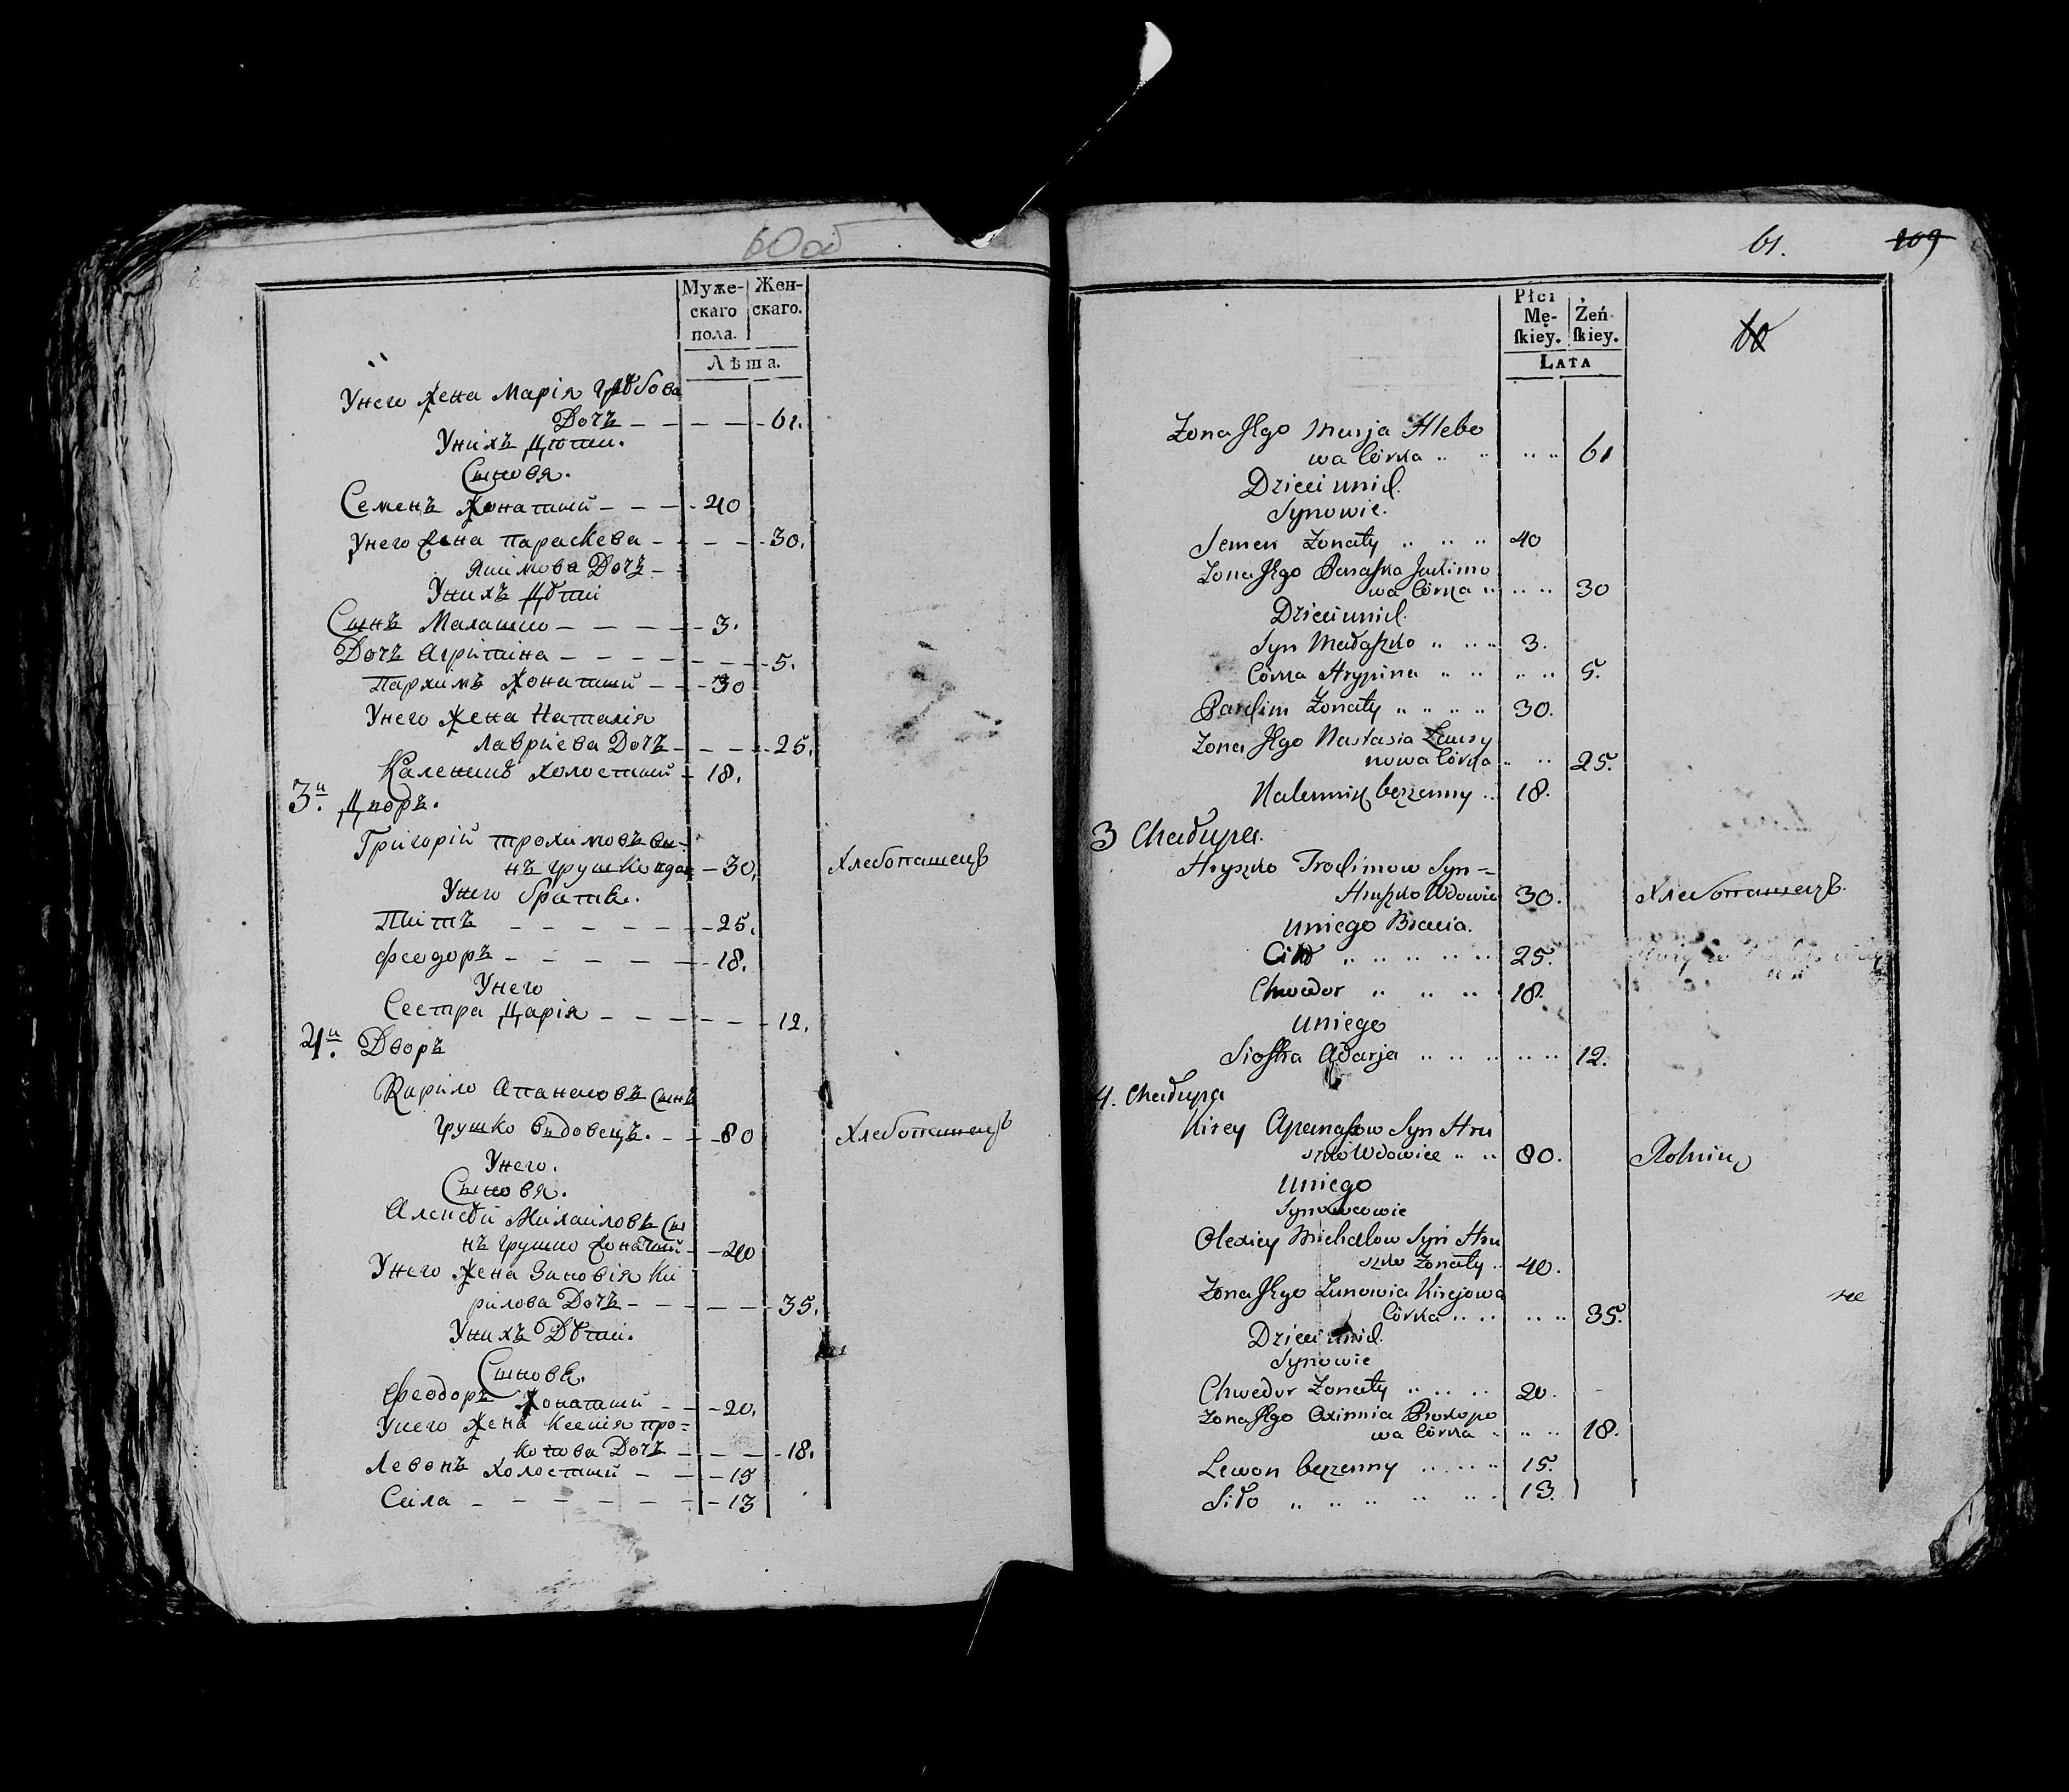 60об
Муже-
скаго
пола.
Жен-
скаго.
Лѣта.
Унего жена Марія Глѣбова
Дочъ — — — — 61.
Унихъ Дѣти.
Сыновя.
Семенъ Жонатый — — — 40
Унего жена параскева — — — — 30.
Якимова Дочъ —
Унихъ Дѣти
Сынъ Малашко — — — — — 3.
Дочъ Агрипина — — — — — — — 5.
Пархимъ Жонатый — — 30
Унего жена Наталія
Лавриева Дочъ — — — — 25.
Каленикъ холостый — 18.
3й Дворъ.
Григорій трохимовъ сы-
нъ грушко вдов — 30.
Хлебопашецъ
Унего братя.
Титъ — — — — — — 25.
Феодоръ — — — — — 18.
Унего
Сестра Дарія — — — — — — 12.
4й Дворъ
Кирило Апанасовъ Сынъ
грушко вдовецъ. — — 80
Хлебопашецъ
Унего.
Сыновя.
Алексѣй Михаиловъ Сы
нъ грушко жонатый — 40
Унего жена Зиновія Ки
рилова Дочъ — — — — — 35.
Унихъ Дѣти.
Сыновя.
Феодоръ Жонатый — — 20.
Унего жена Ксенія про=
копова Дочъ — — — — 18.
Левонъ холостый — — 15
Сила — — — — — — 13
61.
109
Płci
Mę-
ſkiey.
Żeń
ſkiey.
LATA
60
Zona Jego Marja Hlebo
wa Córka .. .. .. .. 61
Dzieci unich.
Synowie.
Semen Zonaty .. .. .. 40
Zona Jego Paraska Jachimo
wa Córka .. .. .. 30
Dzieci unich.
Syn Małaszko .. .. .. 3.
Córka Hrypina .. .. .. .. 5.
Parchim Zonaty .. .. .. .. 30.
Zona Jego Nastasia Ławry
nowa Córka .. .. 25.
Kalennik bezzenny .. 18.
3 Chałupa.
Hryszko Trochimow Syn =
Hruszko Wdowiec 30.
Хлебопашецъ.
uniego Bracia.
Cit .. .. .. .. .. .. 25.
Chwedor .. .. .. 18.
uniego
Siostra Adarja .. .. .. .. .. 12.
4. Chałupa
Kirey Apanasow Syn Hru
szko Wdowiec .. .. 80.
Rolnik
uniego
Synowcowie
Olexiey Michałow Syn Hru
szko Zonaty .. 40.
Zona Jego Zunowia Kirejowa
Córka .. .. .. .. 35.
Dzieci unich.
Synowie
Chwedor Zonaty .. .. .. 20.
Zona Jego Oxinnia Prokopo
wa Córka .. .. .. 18.
Lewon bezzenny .. .. .. 15.
Siło .. .. .. .. .. .. 13.